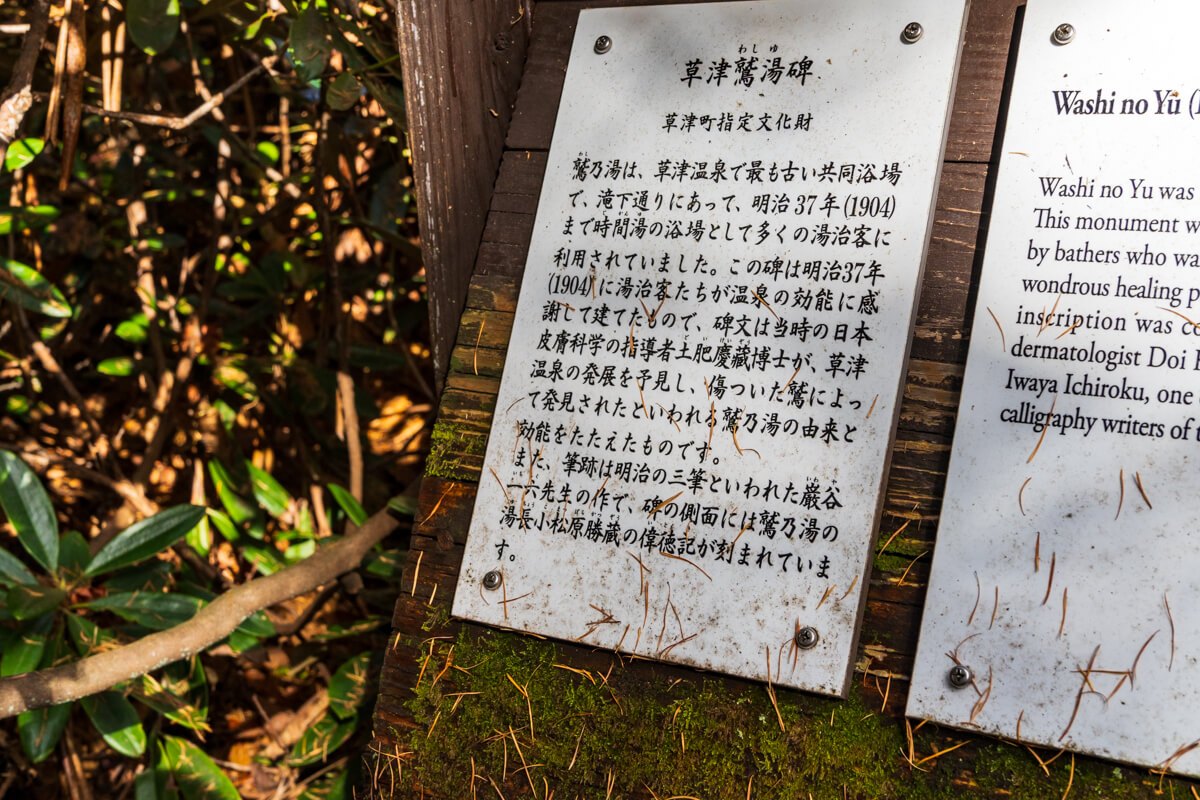 わしゆ
草津鷲湯碑
草津町指定文化財
わし
鷲乃湯は、草津温泉で最も古い共同浴場
で、滝下通りにあって、明治37年(1904)
まで時間湯の浴場として多くの湯治客に
利用されていました。この碑は明治37年
(1904)に湯治客たちが温泉の効能に感
謝して建てたもので、碑文は当時の日本
皮膚科学の指導者土肥慶藏博士が、草津
温泉の発展を予見し、傷ついた鷲によっ
て発見されたといわれる鷲乃湯の由来と
効能をたたえたものです。
また、筆跡は明治の三筆といわれた巌谷
一六先生の作で、碑の側面には鷲乃湯の
湯長小松原勝蔵の偉徳記が刻まれていま
す。
Washi no Yū (
Washi no Yu was
This monument w
by bathers who wa
wondrous healing p
inscription was c
dermatologist Doi
Iwaya Ichiroku, one
calligraphy writers of t